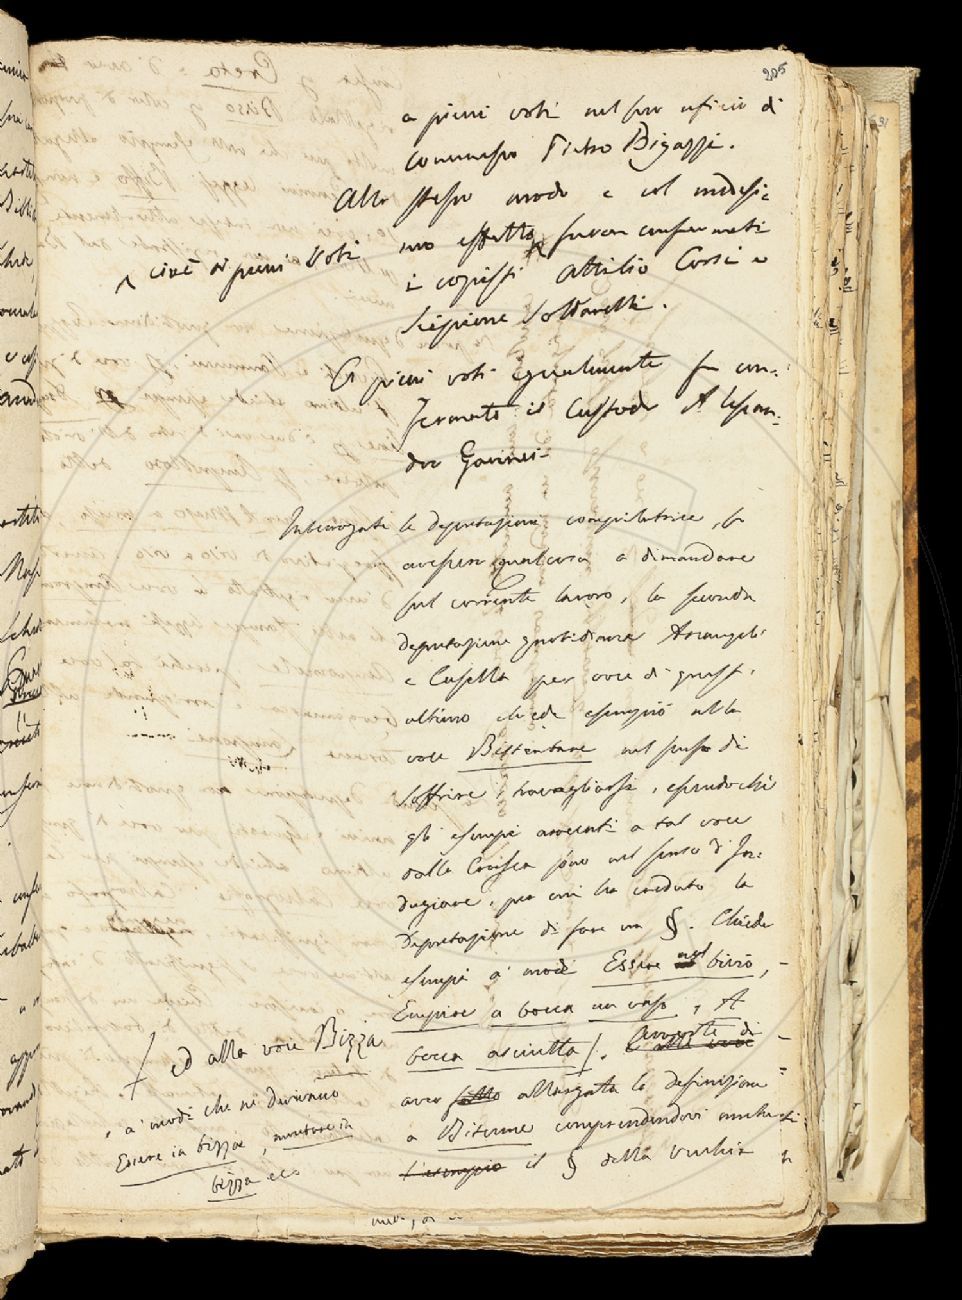 205
a pieni voti nel suo uficio di
commesso Pietro Bigazzi.
Allo stesso modo e col medesi=
mo effetto furon confermati
^ cioè a pieni Voti
i copisti Attilio Corsi e
Scipione Sottanelli.
A pieni voti egualmente fu con=
fermato il Custode Alessan=
dro Gavinei
Interrogate le deputazioni compilatrici, se
avessero qualcosa a dimandare
sul corrente lavoro, la seconda
deputazione quotidiana Arcangeli
e Casella per voce di quest'
ultimo chiede esempio alla
voce Bistentare nel senso di
soffrire, travagliarsi, essendochè
gli esempi arrecati a tal voce
dalla Crusca sono nel senso d'In=
dugiare, per cui ha creduto la
Deputazione di fare un §. Chiede
esempi a' modi Essere nel bivio,
Empire a bocca un vaso, A
bocca asciutta /. Avverte di
/ ed alla voce Bizza
, a' modi che ne derivano
Essere in bizza, montare in
bizza ecc
aver fatto allargata la definizione
a Bitume comprendendovi anche
l'esempio il § della Vecchia